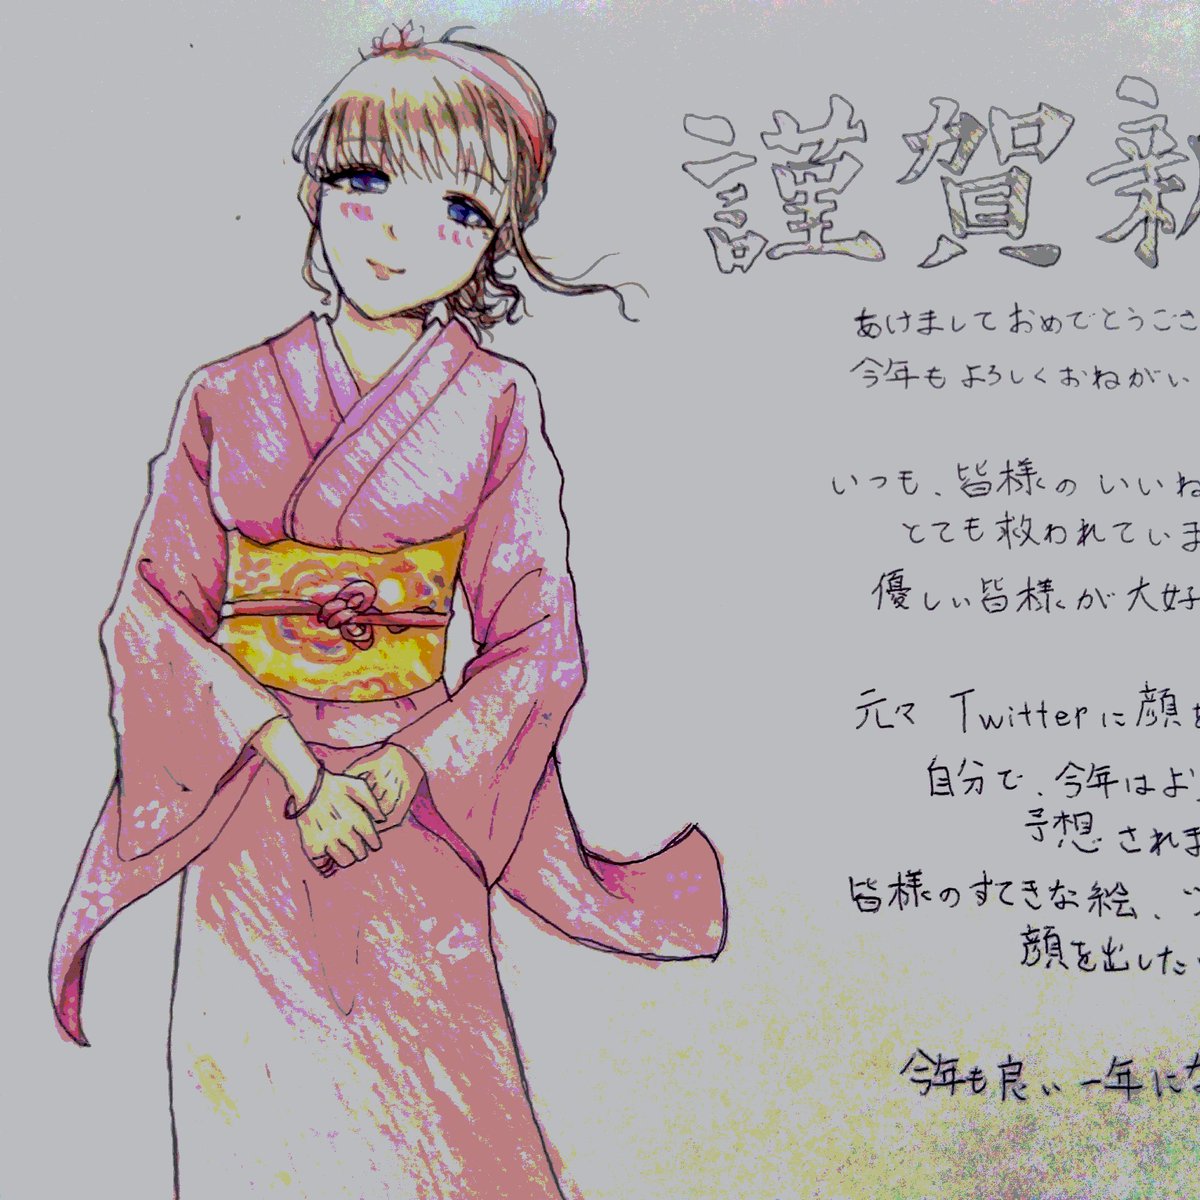 謹賀新
あけましておめでとうござ
今年もよろしくおねがい
いつも、皆様のいいね
とても救われていま
優しい皆様が大好
元々 Twitterに顔を
自分で、今年はよ
予想されま
皆様のすてきな絵、
顔を出した
今年も良い一年にな